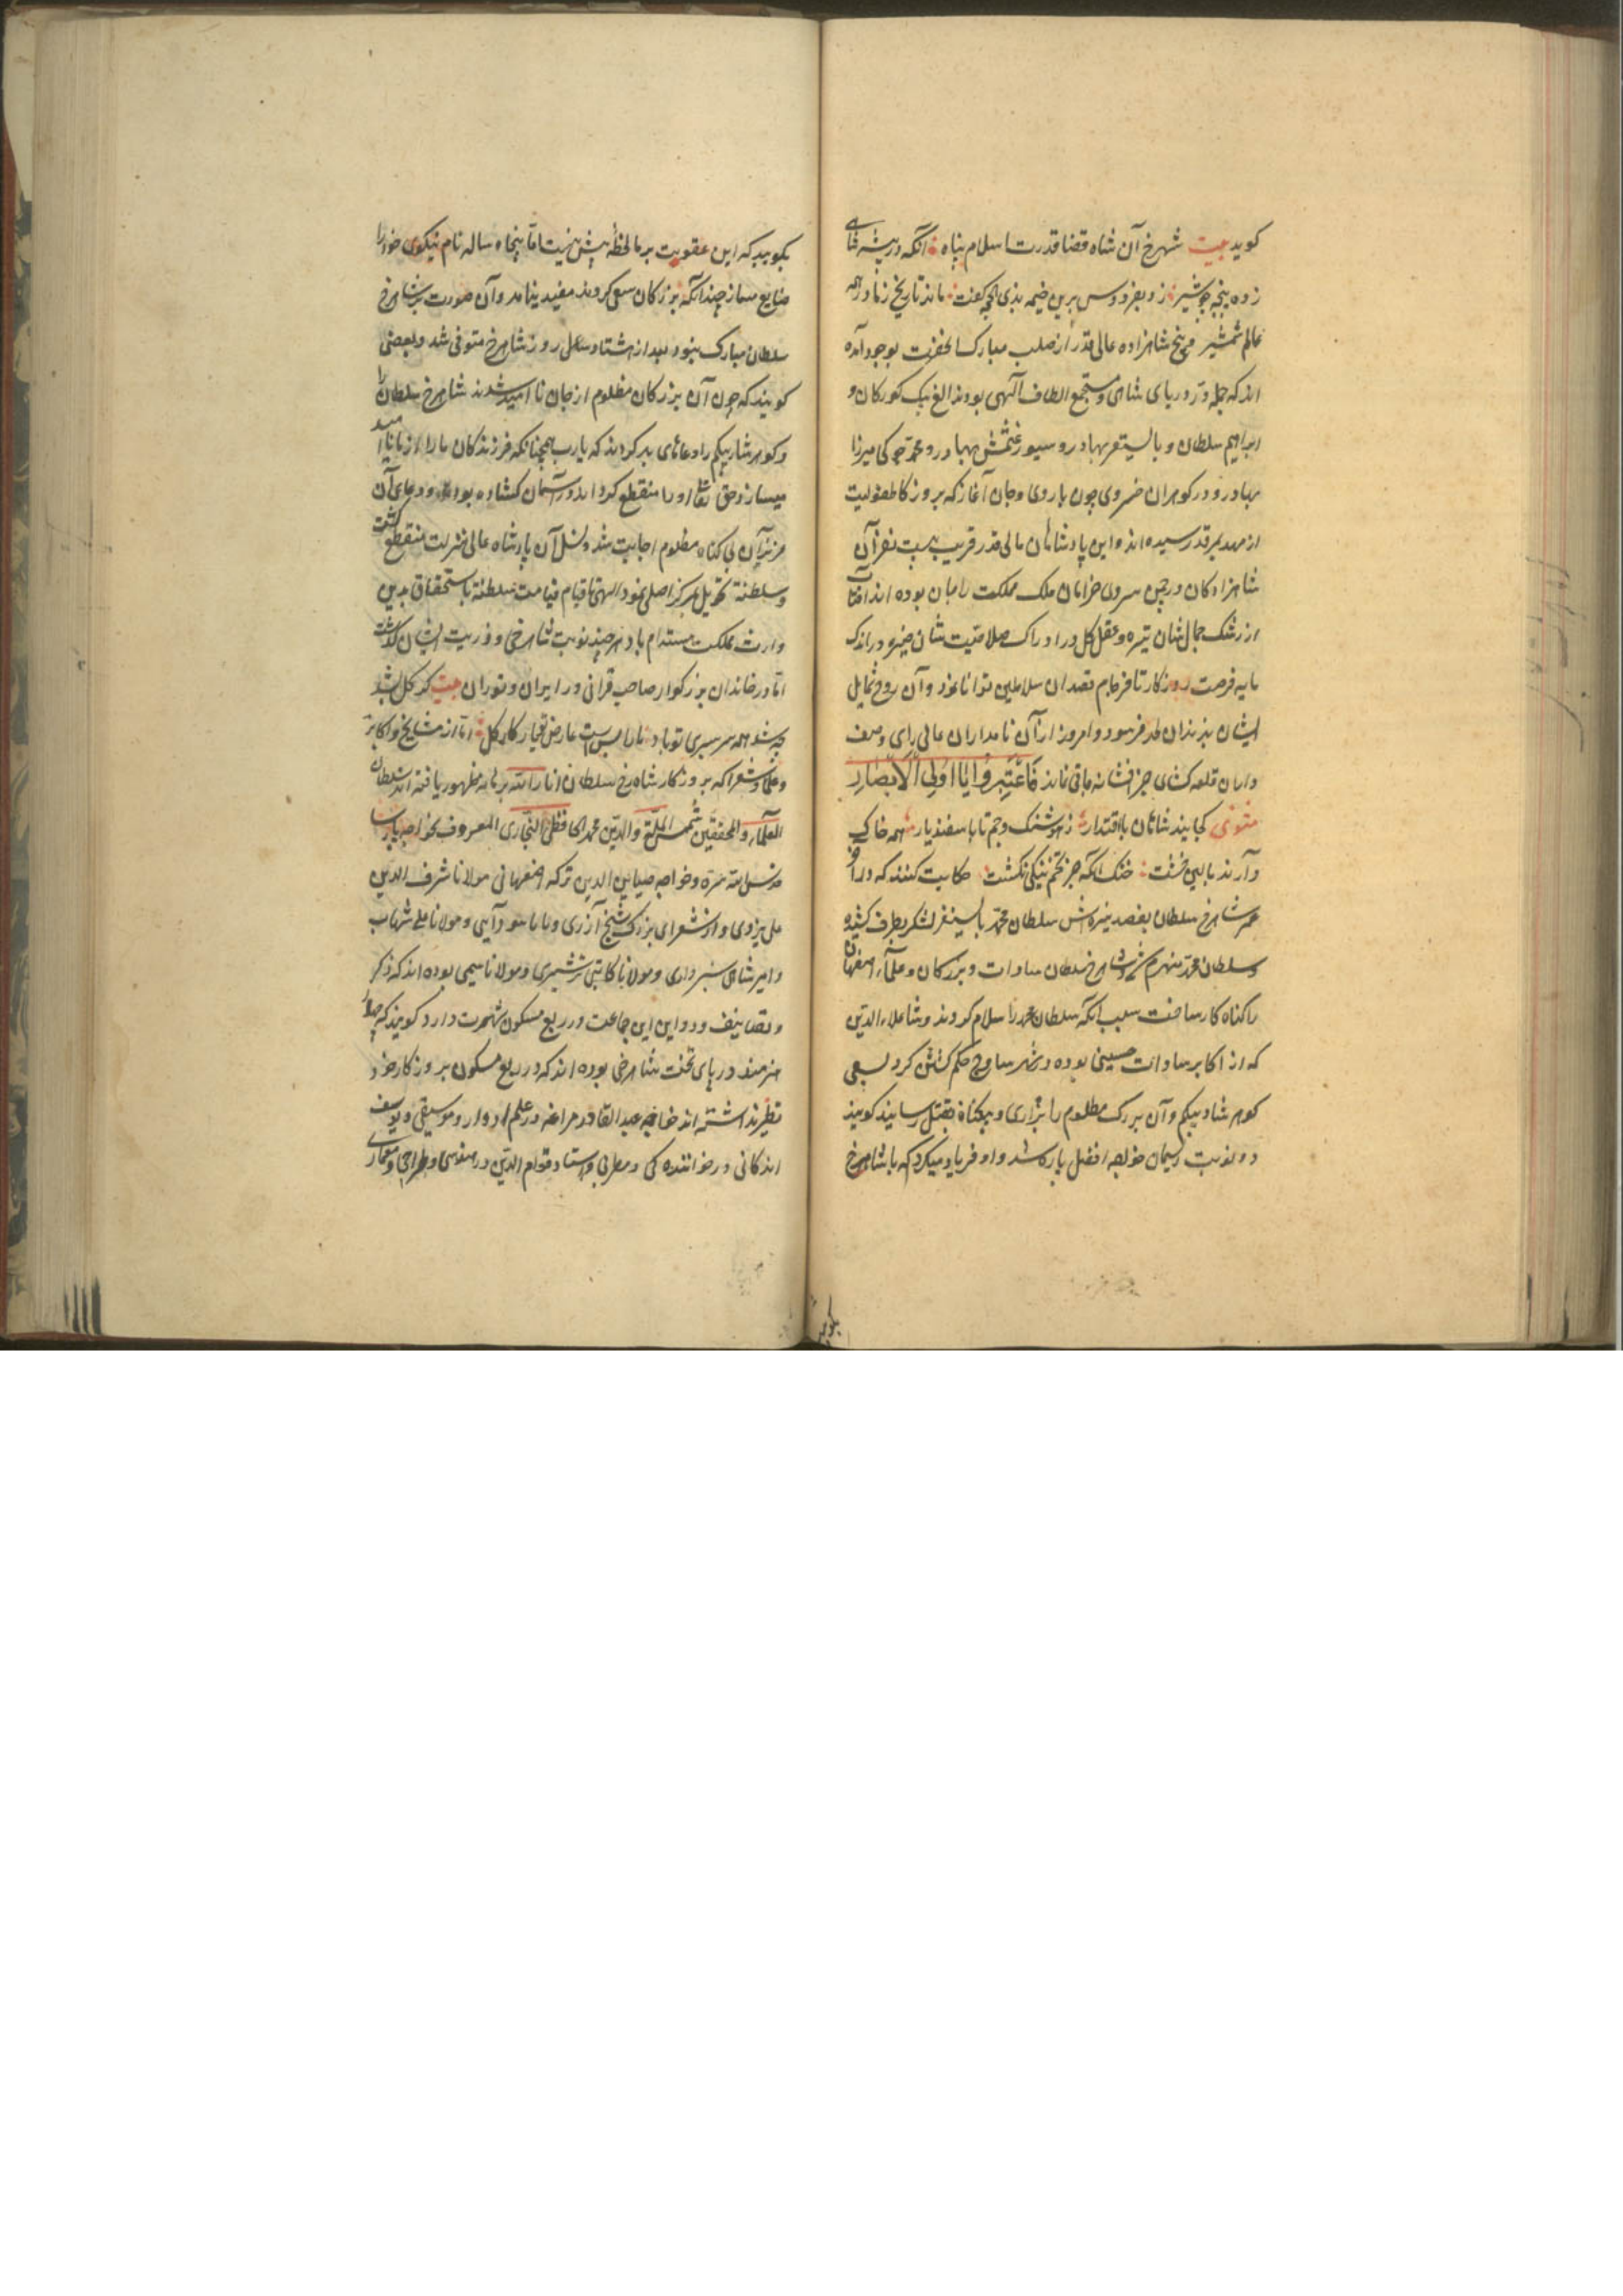 کوید بیت شهرخ آن شاه قضا قدرت اسلام پناه آنکه در بیشه شاهی
زده پنجه چو شیر زد بفردوس برین خیمه بذی الحجه کفت ماند تاریخ زما در همه
عالم شمشیر و پنج شاهزاده عالی قدر از صلب مبارک آنحضرت بوجود آمده
اند که جمله در دریای شاهی و مستجمع الطاف آلهی بودند الغ بیک کورکان و
ابراهیم سلطان و بایسنغر بهادر و سیورغتمش بهادر و محمد جوکی میرزا
بهادر و در کوهران خسروی چون باروی و جان آغاز که بروزکار طفولیت
از مهد بمرقد رسیده اند و این پادشاهان عالی قدر قریب بیست نفر آن
شاهزادکان در چمن سروی خرامان ملک مملکت را مبان بوده اند آفتاب
از رشک جمال شان تیره و عقل کل در ادراک صلاحیت شان خیره در اندک
مایه فرصت روزکار نافرجام قصد آن سلاطین توانا نمود و آن روح شمایل
ایشان بزندان لحد فرسود و امروز از آن نامداران عالی رای وصف
داران قلعه کشای جز افسانه باقی نماند فَاعْتَبِرُوا یَا اُولِی الْاَبْصَارِ
مثنوی کجایند شاهان با اقتدار ز هوشنک و جم تا باسفندیار همه خاک
دارند بالین خشت خنک آنکه جز تخم نیکی نکشت حکایت کنند که در آخر
عمر شاهرخ سلطان بقصد نبیره اش سلطان محمد بایسنغر لشکر بطرف کشیده
و سلطان محمد منهزم شد و شاهرخ سلطان سادات و بزرکان و علمآء اصفهان
را کناه کار ساخت بسبب آنکه سلطان محمد را سلام کردند و شاه علاء الدین
که از اکابر سادات حسینی بوده در شهر ساوه حکم کشتن کرد بسعی
کوهر شاد بیکم و آن بزرک مظلوم را بزاری و بیکناه بقتل رسانید کویند
دو نوبت ریسمان خواجه افضل پاره شد و او فریاد میکرد که با شاهرخ
بکویید که این عقوبت بر ما لحظهٔ بیش نیست اما پنجاه ساله نام نیکوی خود را
ضایع مساز چندانکه بزرکان سعی کردند مفید نیامد و آن صورت بر شاهرخ
سلطان مبارک نبود بعد از هشتاد روز شاهرخ متوفی شد و بعضی
کویند که چون آن بزرکان مظلوم از جان ناامید شدند شاهرخ سلطان را
و کوهر شاد بیکم را دعاهای بد کردند که یارب همچنانکه فرزندکان ما را ناامید
میسازد حق تعالی او را منقطع کرداند در آسمان کشاده بود و دعای آن
عزیزان بی کناه مظلوم اجابت شد و نسل آن پادشاه عالی منزلت منقطع کشت
و سلطنة تحویل بمرکز اصلی نمود الهی تا قیام قیامت سلطنة باستحقاق بدین
وارث مملکت مستدام باد هر چند نوبت شاهرخی و ذریت ایشان کذشت
اما در خاندان بزرکوار صاحب قرانی در ایران و توران بیت کر کل بشد
چه شد همه سرسبزی تو باد ما را بس است عارض تو یار کار کل اما از مشایخ و اکابر
و علما و شعرا که بروزکار شاه رخ سلطان انار الله برهانه ظهور یافته اند سلطان
العلمآء و المحققین شمس الملة و الدین محمد الحافظی البخاری المعروف بخواجه پارسا
قدس الله سره و خواجه صیاین الدین ترکه اصفهانی مولانا شرف الدین
علی یزدی و از شعرای بزرک شیخ آزری و بابا سودآیی و مولانا علی شهاب
و امیر شاهی سبزواری و مولانا کاتبی ترشیزی و مولانا سیمی بوده اند که ذکر
و تصانیف و دواین این جماعت در ربع مسکون شهرت دارد کویند که چهار
هنرمند در پای تخت شاهرخی بوده اند که در ربع مسکون بروزکار خود
نظیر نداشته اند خواجه عبد القادر مراغه در علم ادوار و موسیقی و یوسف
اندکانی در خوانندکی و مطربی و استاد قوام الدین در مهندسی و طراحی و معماری
بکویید